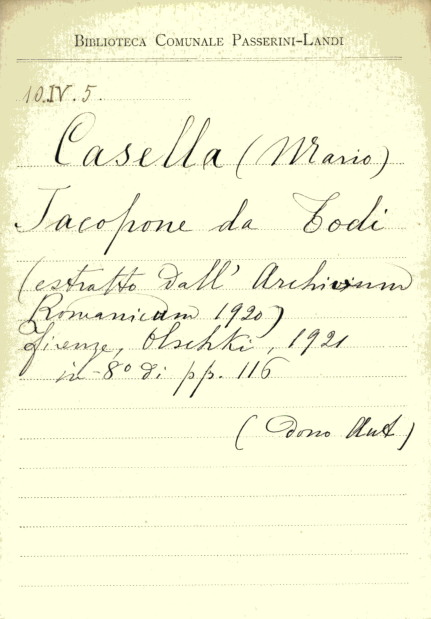 BIBLIOTECA COMUNALE PASSERINI-LANDI
10.IV.5.
Casella (Mario)
Jacopone da Todi
(estratto dall' Archivum
Romanicum 1920)
Firenze, Olschki, 1921
in-8º di pp. 116
(dono Aut)